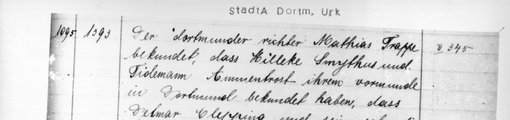 StadtA Dortm. Urk
1095 1393 Der Dortmunder richter Mathias Trappe U 345
bekundet, dass Hilleke Smythus und
Tidemann Amentrost ihrem vormunde
in Dortmund bekundet haben, dass
Detmar Clepping und